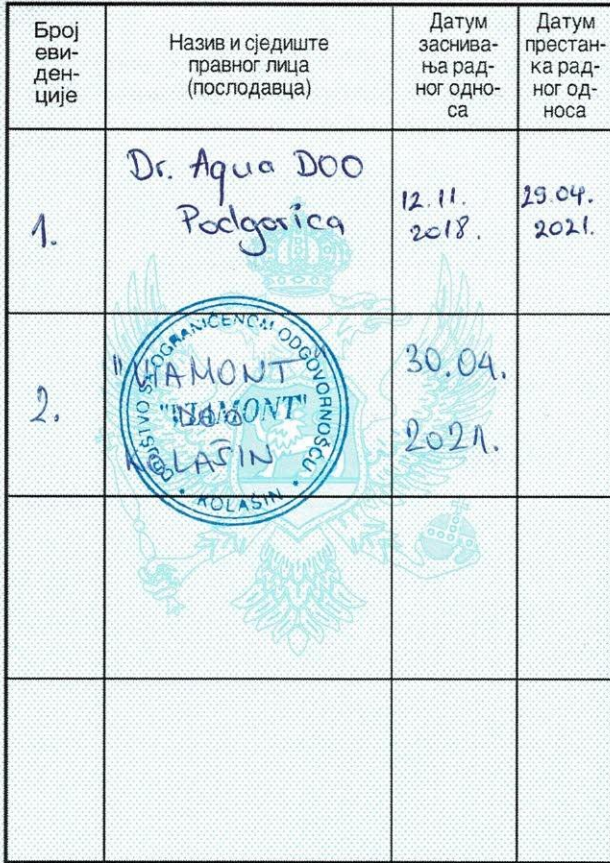 Број
еви-
ден-
ције
Назив и сједиште
правног лица
(послодавца)
Датум
заснива-
ња рад-
ног одно-
са
Датум
престан-
ка рад-
ног од-
носа
1.
Dr. Aqua DOO
Podgorica
12.11.
2018.
29.04.
2021.
2.
"VIAMONT
KOLAŠIN
DRUŠTVO SA OGRANIČENOM ODGOVORNOŠĆU
"VIAMONT"
KOLAŠIN
30.04.
2021.